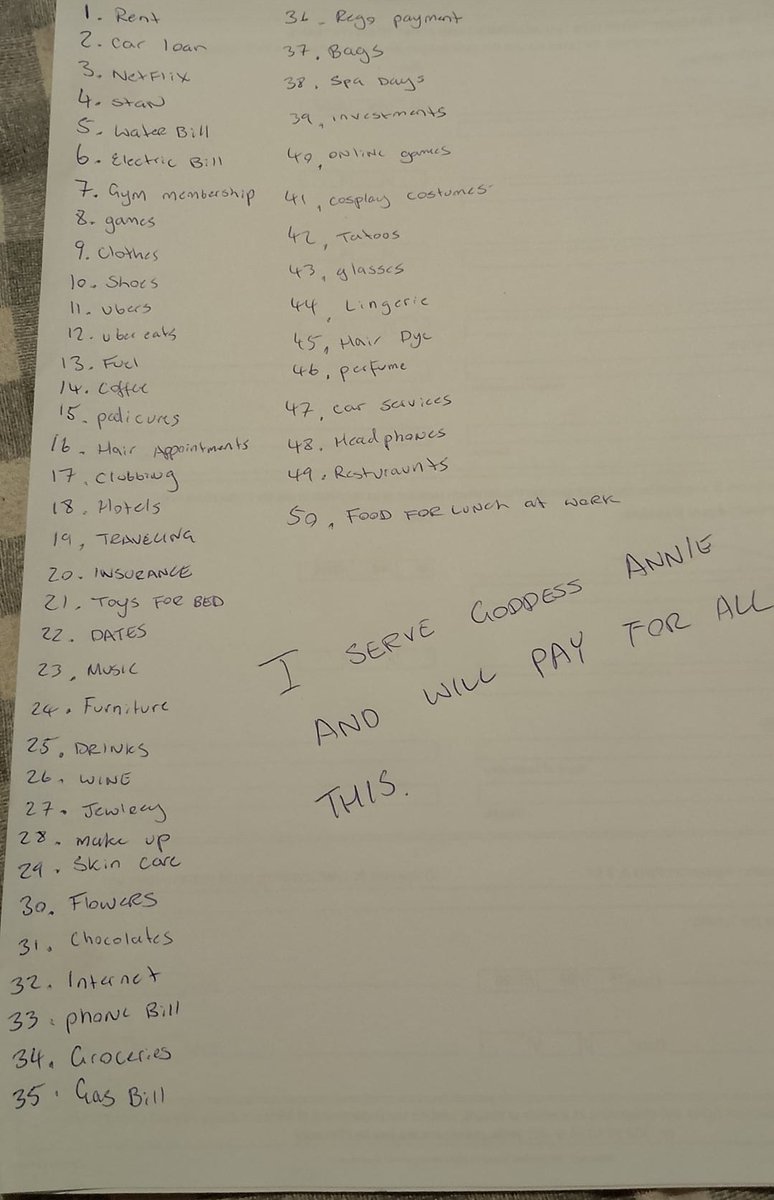 1. Rent
2. Car loan
3. Netflix
4. Stan
5. Water Bill
6. Electric Bill
7. Gym membership
8. games
9. Clothes
10. Shoes
11. Ubers
12. Uber eats
13. Fuel
14. Coffee
15. pedicures
16. Hair Appointments
17. Clubbing
18. Hotels
19, TRAVELING
20. INSURANCE
21. Toys FOR BED
22. DATES
23, Music
24. Furniture
25. DRINKS
26. WINE
27. Jewlery
28. make up
29. Skin care
30. Flowers
31. Chocolates
32. Internet
33. phone Bill
34. Groceries
35. Gas Bill
36. Rego payment
37. Bags
38. Spa Days
39, investments
40, online games
41, cosplay costumes
42, Tatoos
43, glasses
44, Lingerie
45, Hair Dye
46, perfume
47, car services
48. Headphones
49. Resturaunts
50, FOOD FOR LUNCH at WORK
I SERVE GODDESS ANNIE
AND WILL PAY FOR ALL
THIS.